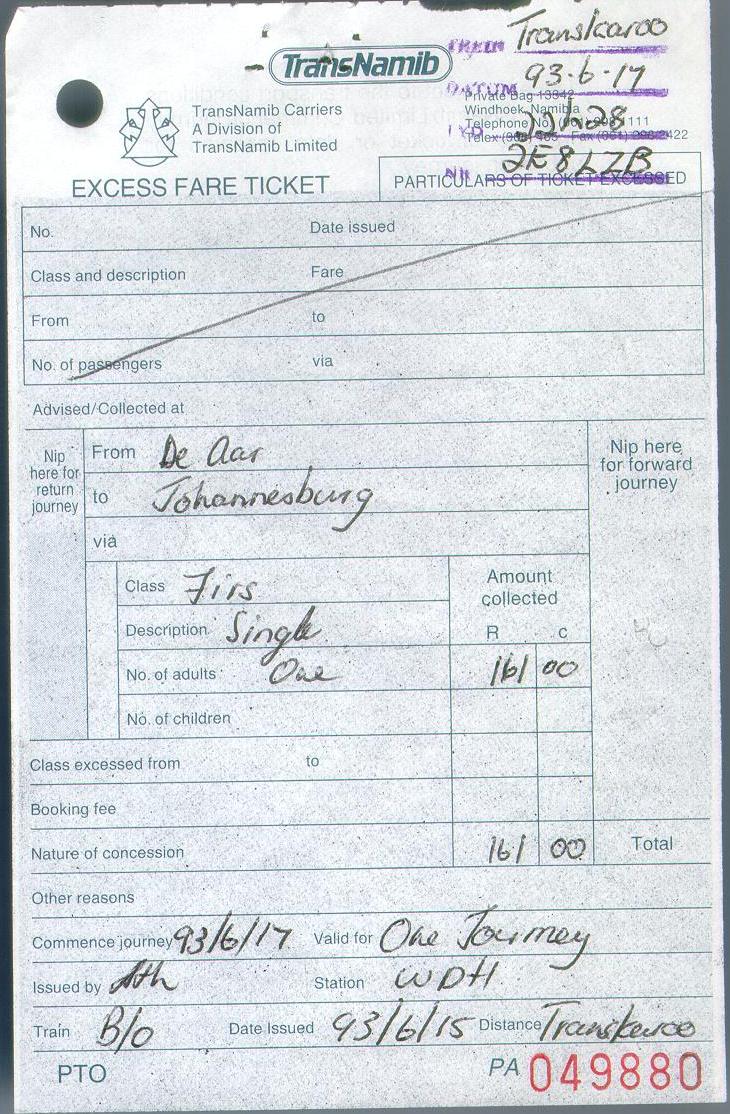 TREIN Transkaroo
TransNamib
DATUM 93-6-17
Private Bag 13342
Windhoek, Namibia
TransNamib Carriers
A Division of
TransNamib Limited
Telephone No. 1111
TYD
Telex Fax (061) 2422
NR 2E8LZB
EXCESS FARE TICKET
PARTICULARS OF TICKET EXCESSED
No. Date issued
Class and description Fare
From to
No. of passengers via
Advised/Collected at
Nip here for return journey
From De Aar
Nip here for forward journey
to Johannesburg
via
Class Firs
Amount collected
Description Single
R c
No. of adults One 161 00
No. of children
Class excessed from to
Booking fee
Nature of concession 161 00 Total
Other reasons
Commence journey 93/6/17 Valid for One Journey
Issued by Station WDH
Train B/o Date Issued 93/6/15 Distance Transkaroo
PTO PA 049880